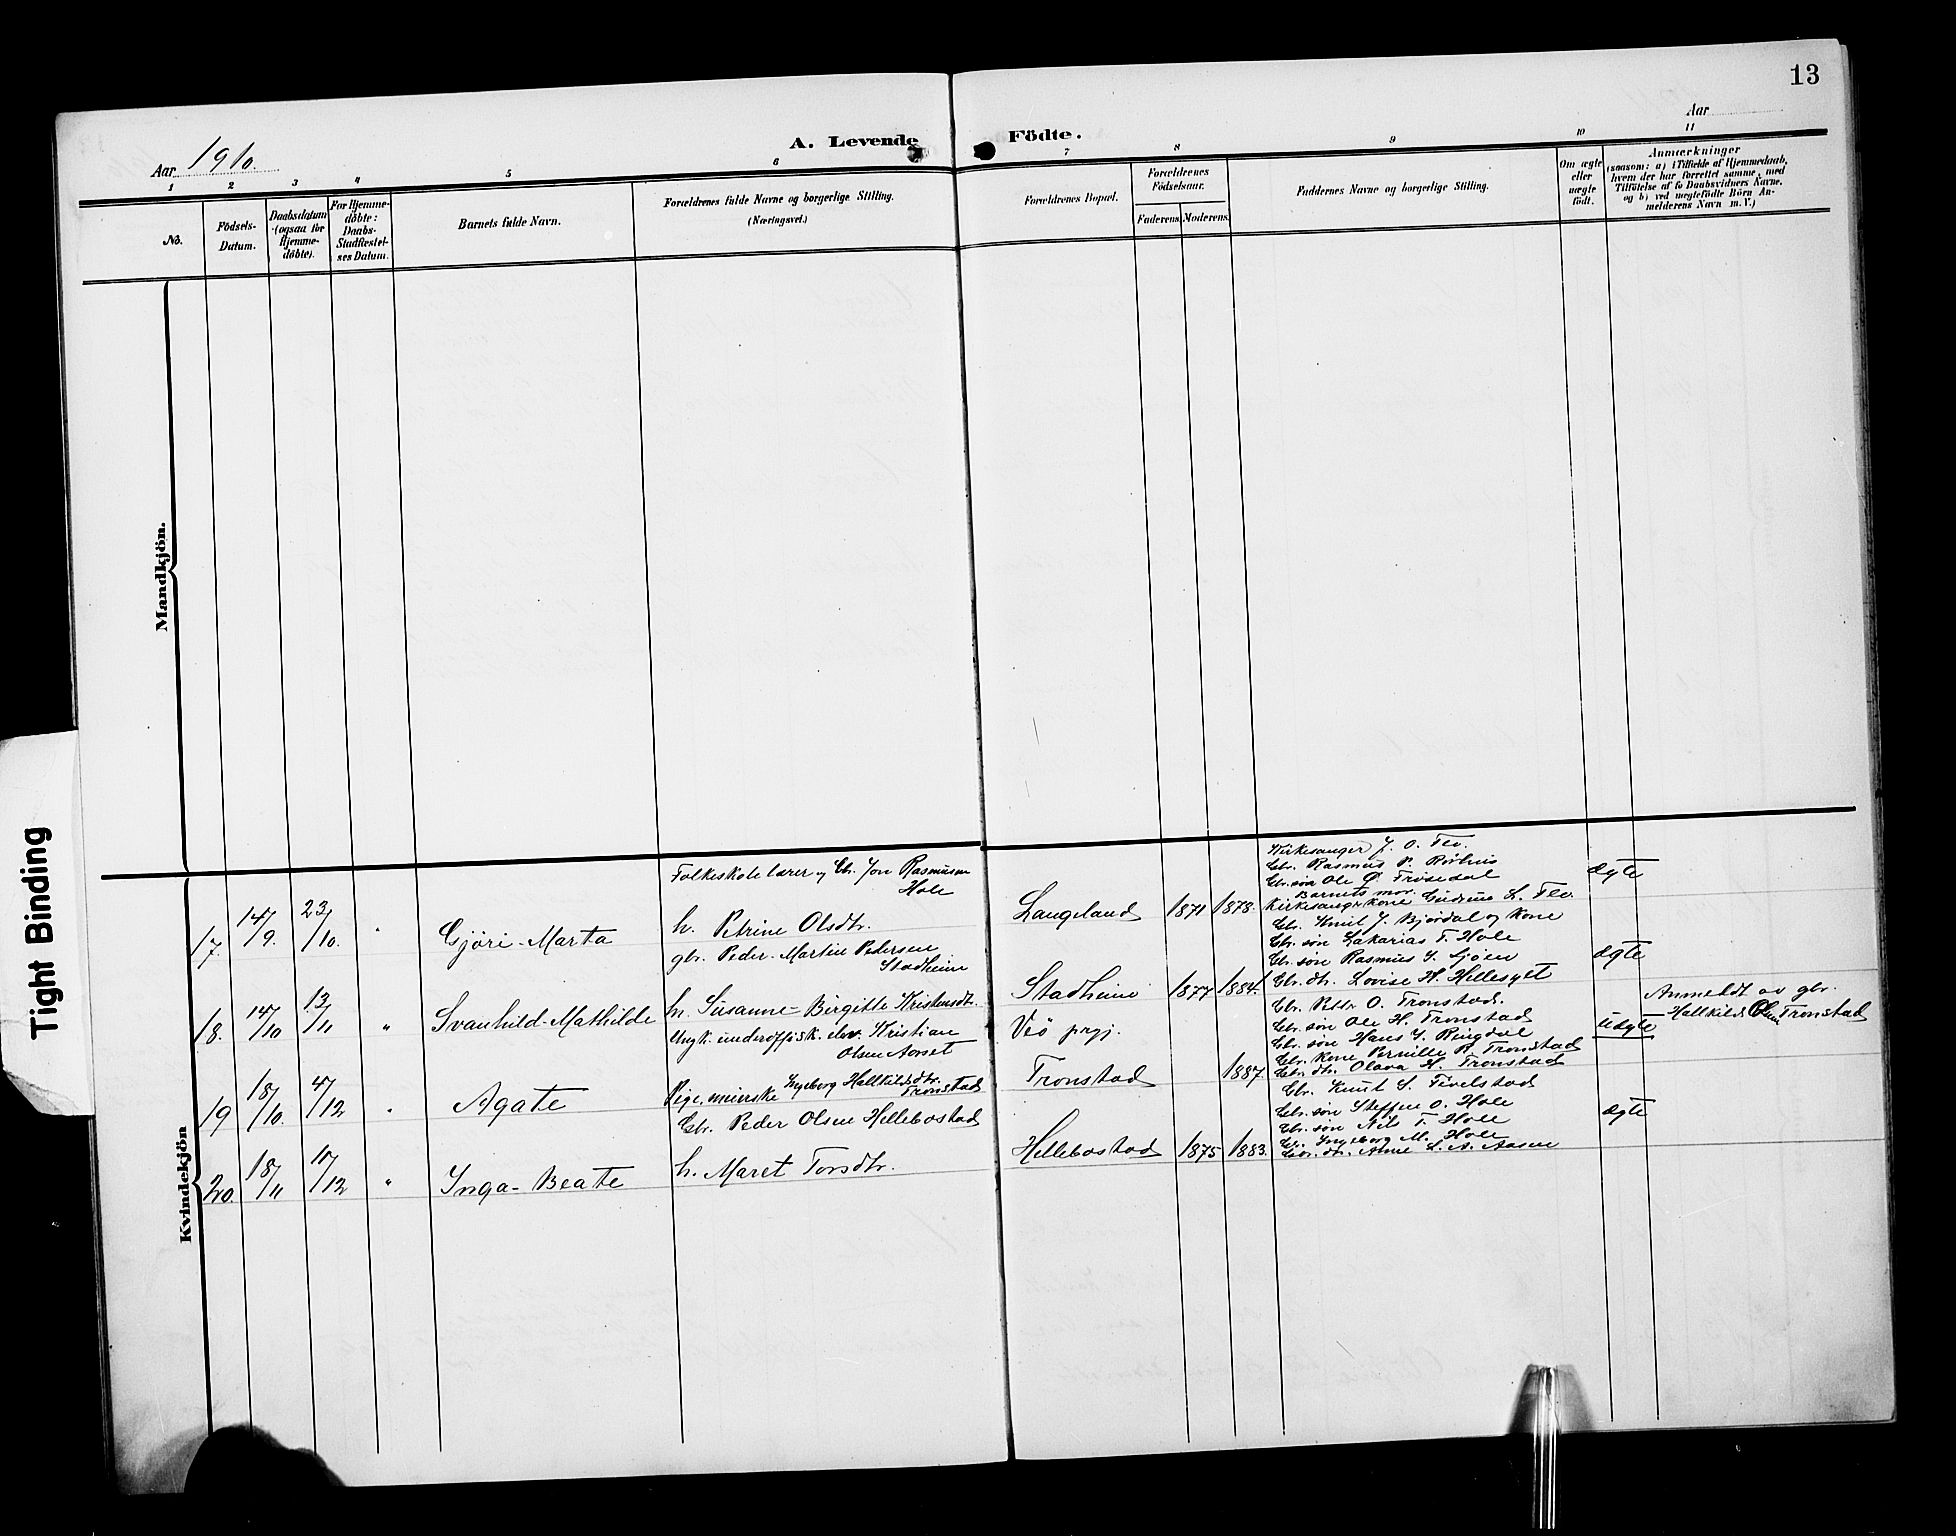 13
Aar 1910.
A. Levende Födte.
Aar
1 2 3 4 5 6 7 8 9 10 11
No.
Födsels-Datum.
Daabsdatum (ogsaa for Hjemme-döbte).
For Hjemme-döbte: Daabs-Stadfæstelses Datum.
Barnets fulde Navn.
Forældrenes fulde Navne og borgerlige Stilling. (Næringsvei.)
Forældrenes Bopæl.
Forældrenes Födselsaar.
Faderens. Moderens.
Faddernes Navne og borgerlige Stilling.
Om ægte eller uægte födt.
Anmærkninger
(saasom: a) i Tilfælde af Hjemmedaab,
hvem der har forrettet samme, med
Tilföielse af to Daabsvidners Navne.
og b) ved uægtefödte Börn An-
melderens Navn m. V.)
Mandkjön.
Kvindekjön
Tight Binding
17. 14/9. 23/10. " Gjöri-Marta
Folkeskolelærer og Gbr. Jon Rasmusen
Hole
h. Petrine Olsdtr.
Langeland 1871 1878.
Kirkesanger J. O. Flo.
Gbr. Rasmus P.
Gbr. søn Ole O. Frøsedal
Barnets mor.
Kirkesanger kone Gudrun L. Flo.
ægte
18. 14/10 13/11 " Svanhild-Mathilde
gbr. Peder-Martin Pedersen
Stadheim
h. Susanne-Birgitte Kristensdtr.
Stadheim 1877 1884.
Gbr. Knut J. Bjørdal og kone
Gbr. søn Zakarias T. Hole
Gbr. søn Rasmus I. Sjøen
Gbr. dtr. Lovise H. Hellesylt
ægte
19 18/10. 4/12 " Agate
Ungk. underoffisk. elev. Kristian
Olsen Aorset
Pige, Ingeborg Hallkildsdtr.
Tronstad
Veö prgj.
Tronstad 1887.
Gbr. Petter O. Tronstad.
Gbr. søn Ole H. Tronstad
Gbr. søn Hans I. Ringdal
Gbr. kone Pernille P. Tronstad
Gbr. dtr. Olava H. Tronstad
uægte
Anmeldt av gbr.
Hallkild Olsen Tronstad
20. 18/11 11/12 " Inga-Beate
Gbr. Peder Olsen Hellebostad
h. Maret Torsdtr.
Hellebostad 1875 1883.
Gbr. Knut S. Tevelstad
Gbr. søn Steffen O. Hole
Gbr. søn Nils T. Hole
Ingeborg M. Hole
Gbr. dtr. Anne L. A. Aasen
ægte